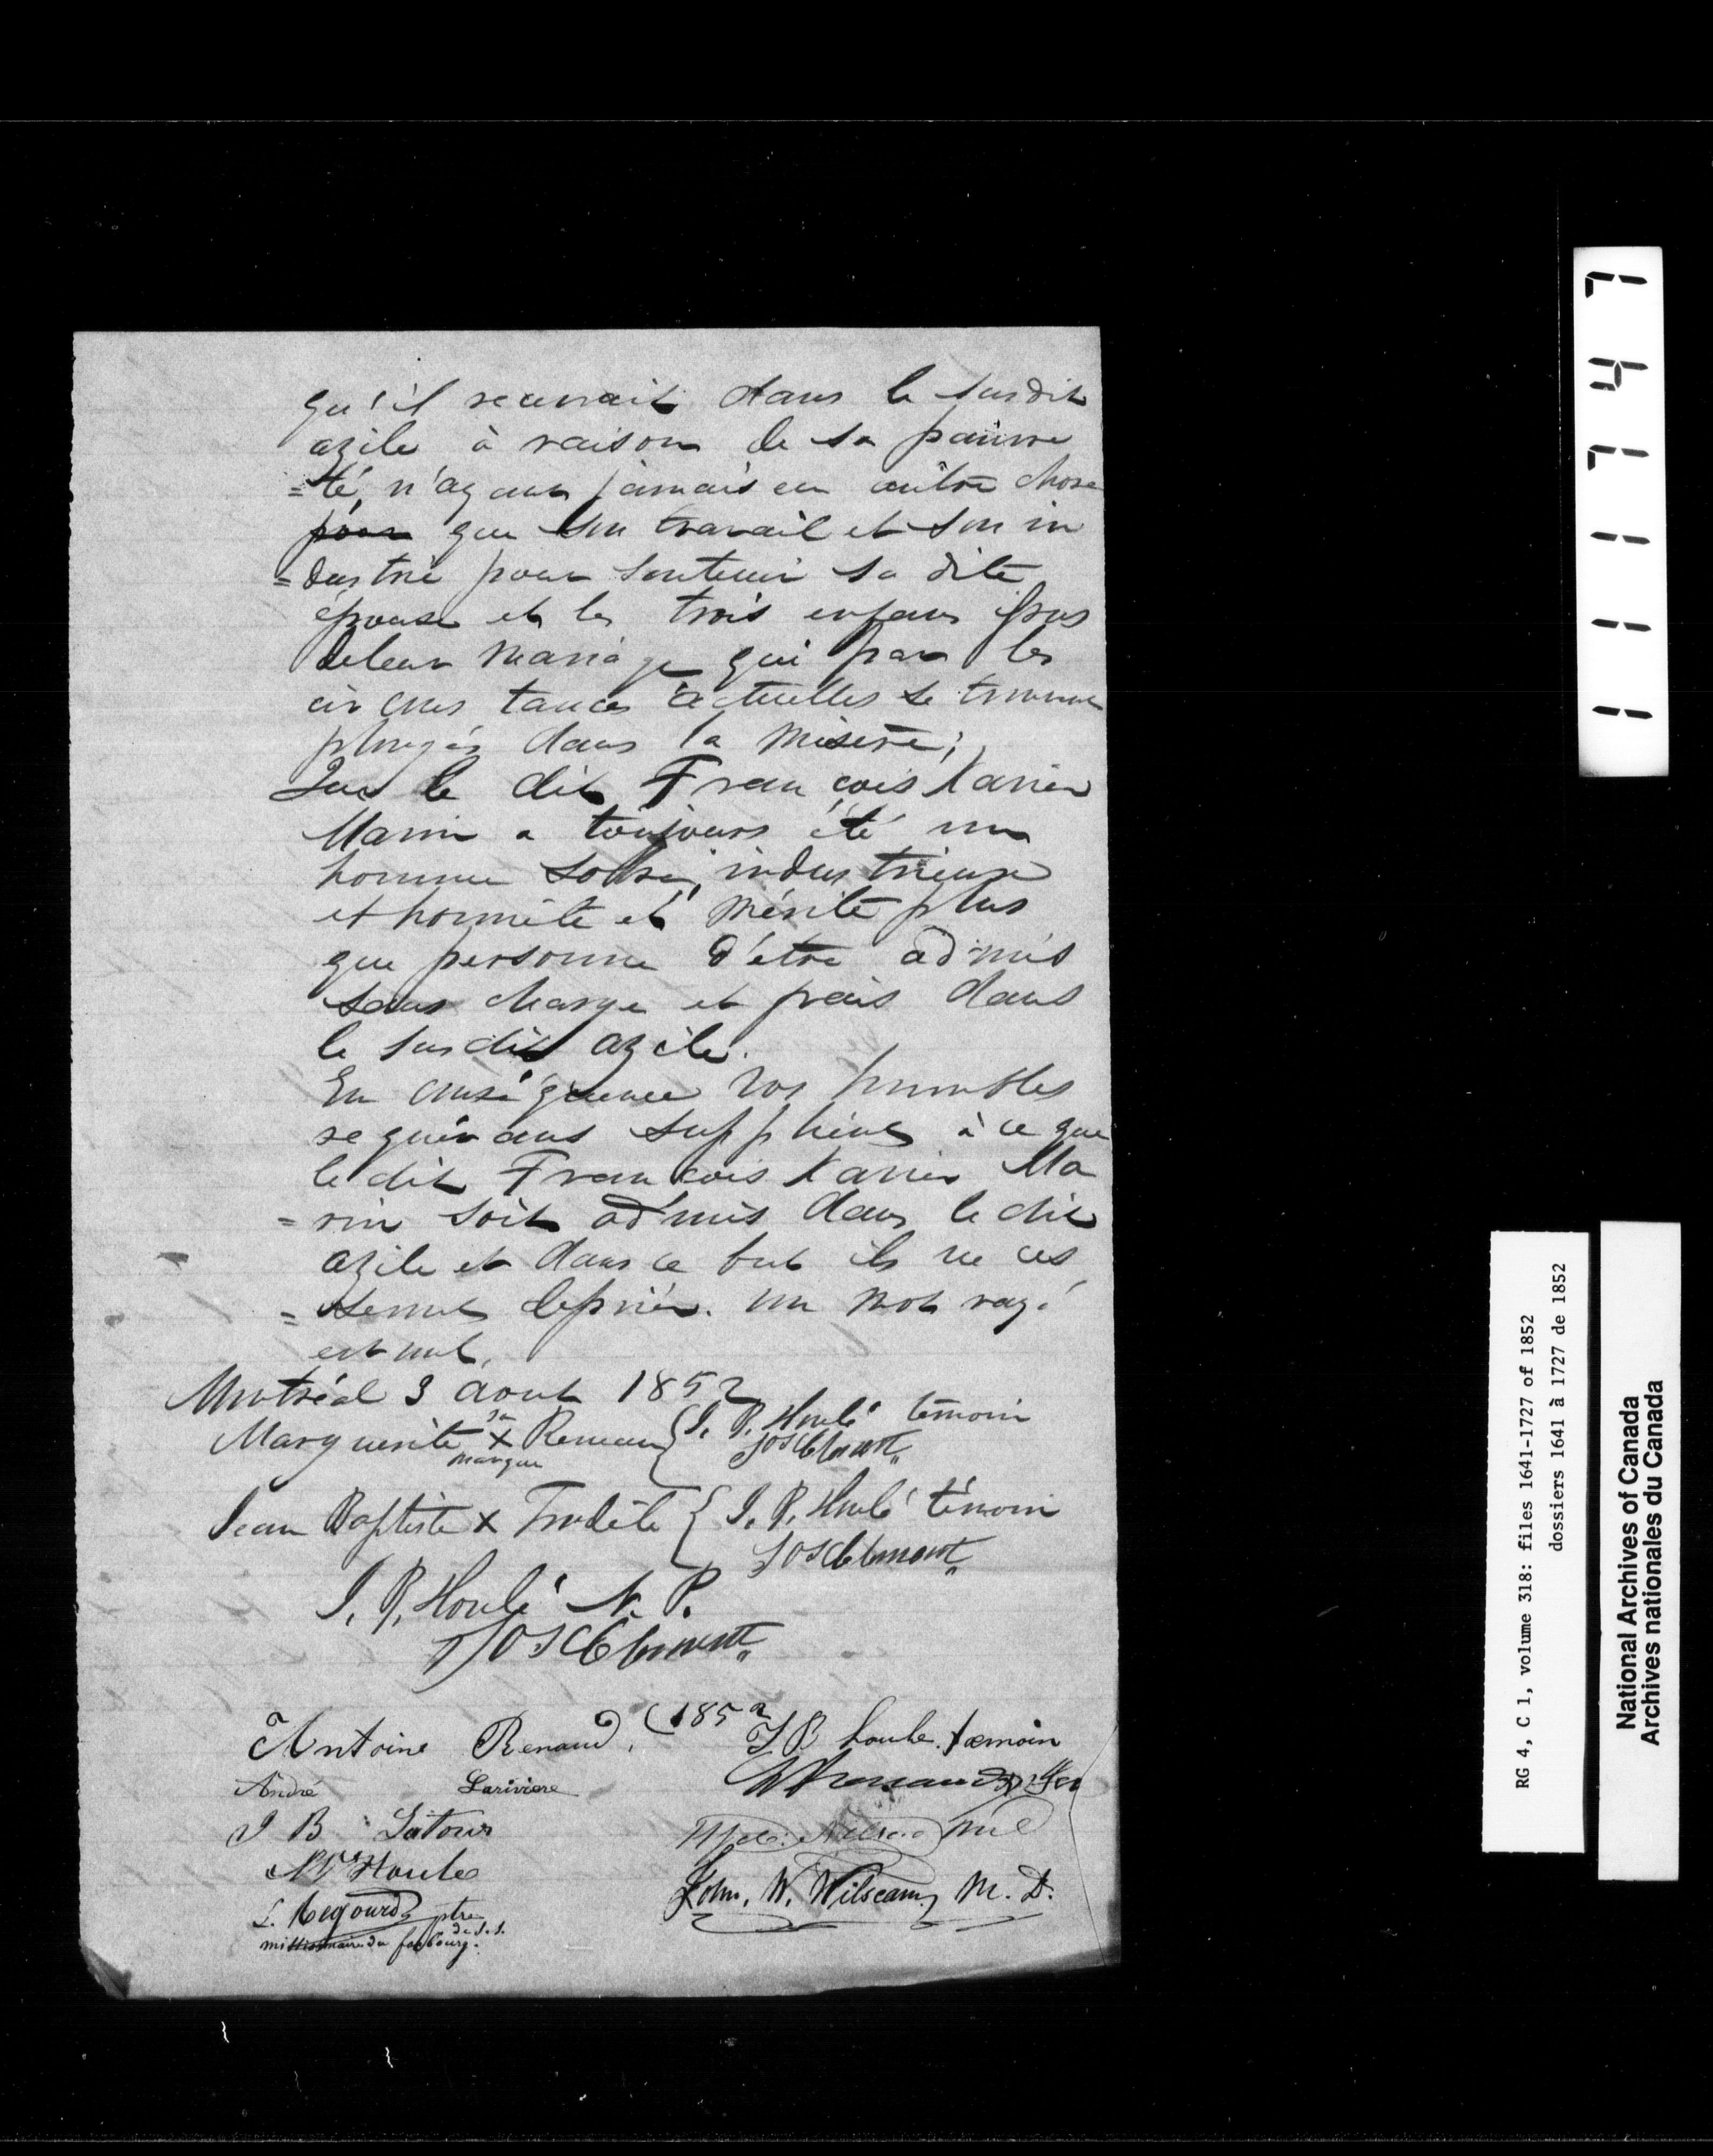 qu'il recevrait dans le susdit
azile à raison de sa pauvre
=té, n'ayant jamais eu autre chose
pour que son travail et son in
=dustrie pour soutenir sa dite
épouse et les trois enfans issus
de leur mariage qui par les
circonstances actuelles se trouvent
plongés dans la misère;
Que le dit François Xavier
Marin a toujours été un
homme sobre, industrieux
et honnête et mérite plus
que personne d'être admis
sans charge et frais dans
le susdit azile.
En conséquence vos humbles
requérans supplient à ce que
le dit François Xavier Ma
=rin soit admis dans le dit
azile et dans ce but ils ne ces
=seront de prier. un mot rayé
est nul.
Montréal 3 aout 1852
Marguerite sa X marque Renaud { J. B. Houlé témoin
Jos Clement
Jean Baptiste X Trudelle { J. B. Houlé témoin
Jos Clement
J. B. Houlé N. P.
Jos Clement
Antoine Renaud, (1852 J B houle. temoin
André Lariviere
J B Latour
Houle
John. W. Wilscam, M. D.
L. Regourd ptre
de S. S.
missionnaire du faubourg.
111747
RG 4, C 1, volume 318: files 1641-1727 of 1852
dossiers 1641 à 1727 de 1852
National Archives of Canada
Archives nationales du Canada